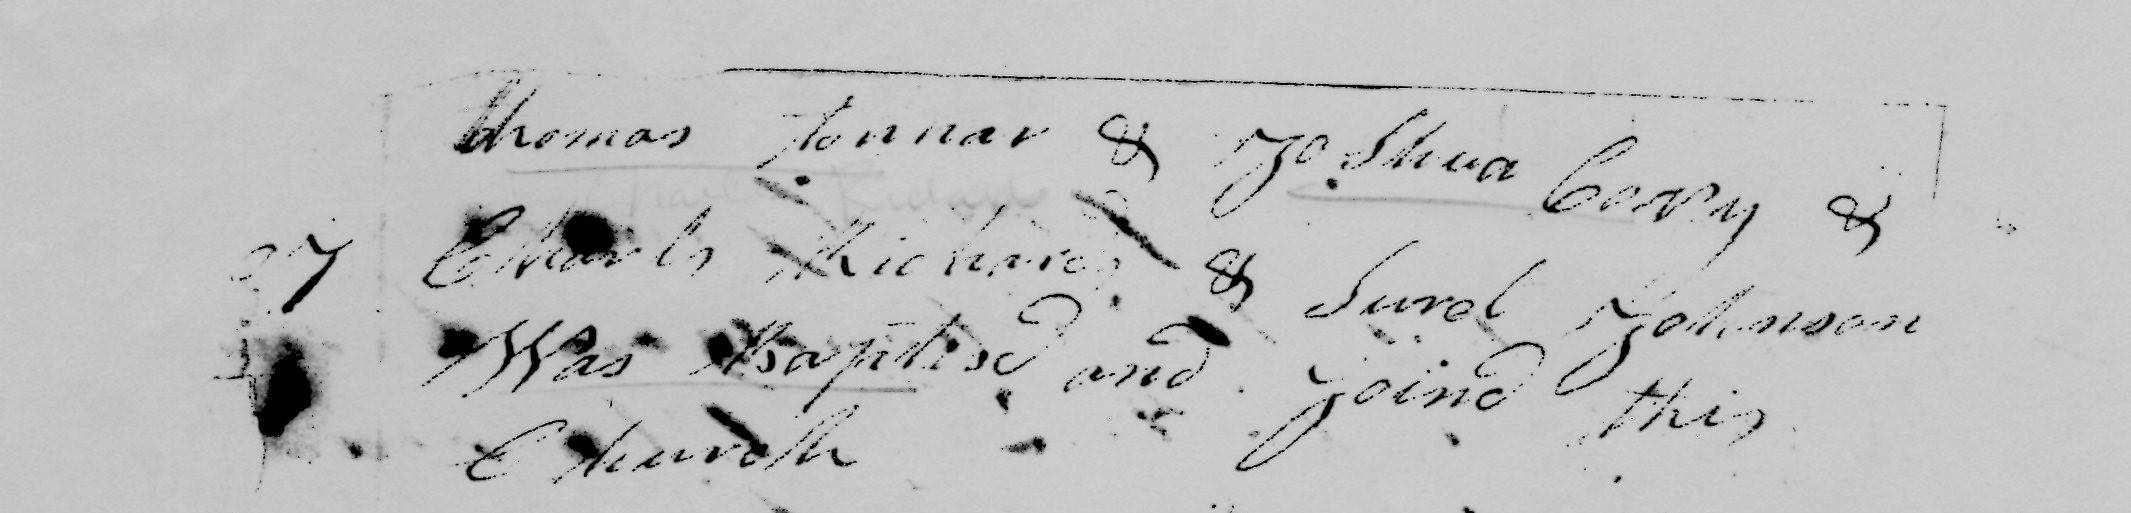 Thomas Tonnar & Joshua Corry &
27 Charls Richards & Surel Johnson
Was Baptisd and joind this
Church